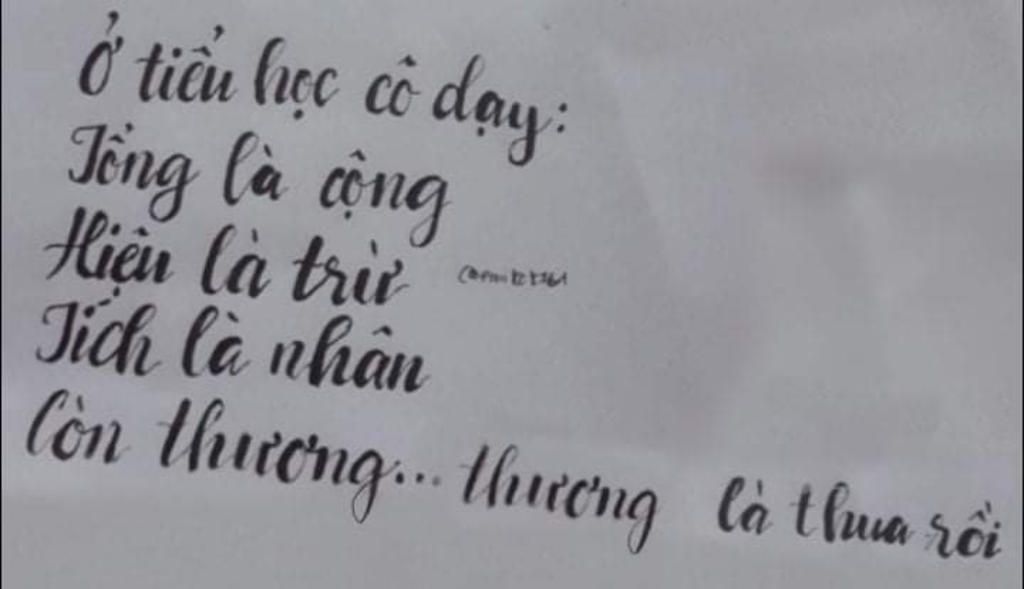 Ở tiểu học cô dạy:
Tổng là cộng
Hiệu là trừ
Tích là nhân
Còn thương... thương là thua rồi